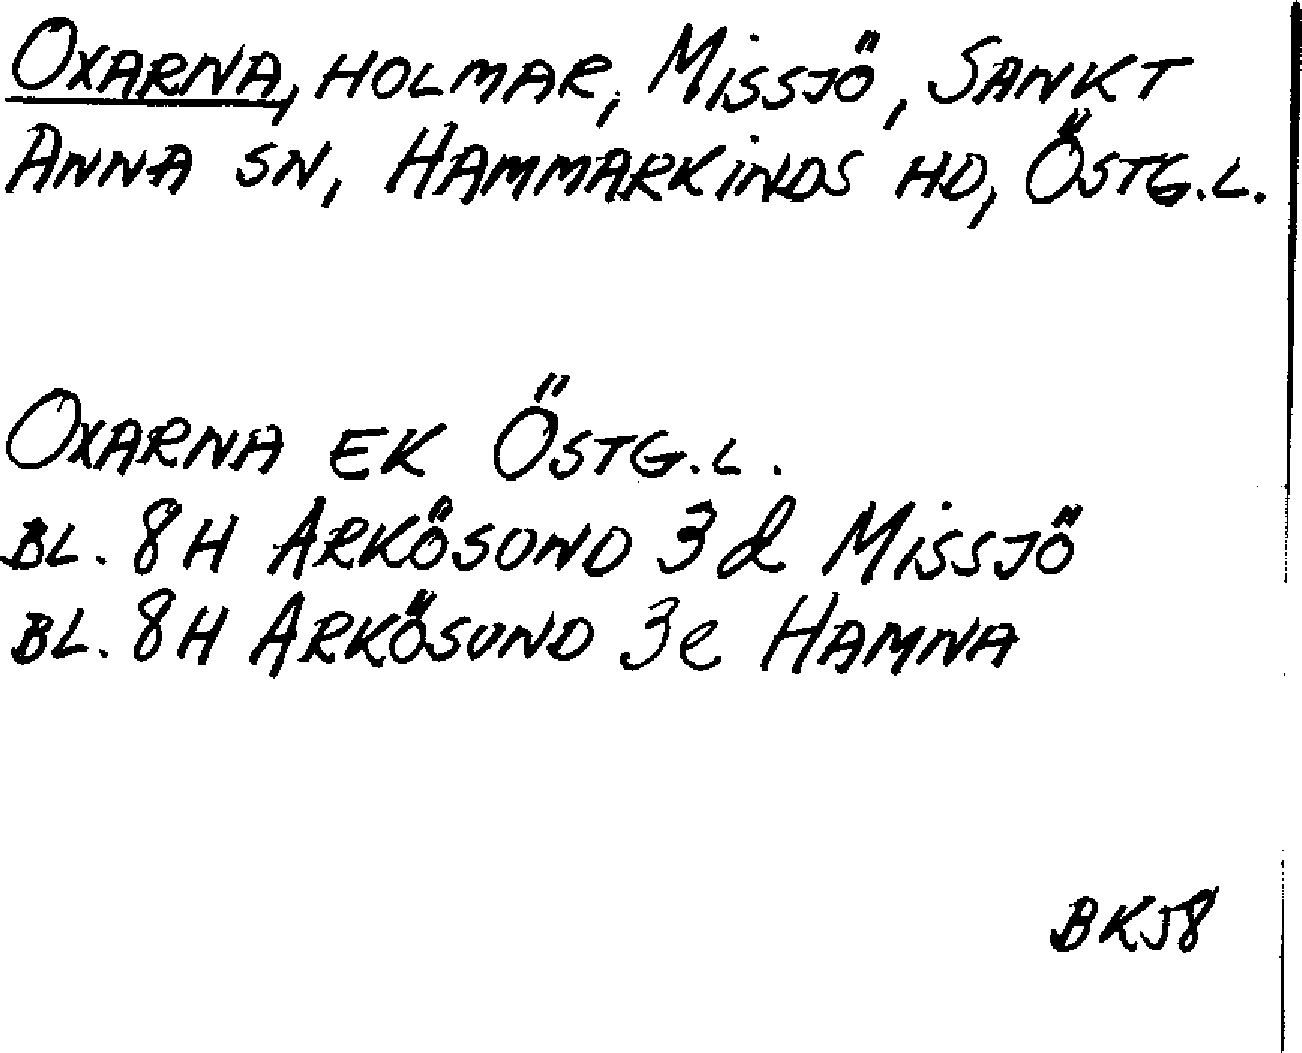 OXARNA, HOLMAR, MISSJÖ, SANKT
ANNA SN, HAMMARKINDS HD, ÖSTG.L.
OXARNA EK ÖSTG.L.
BL. 8H ARKÖSUND 3d MISSJÖ
BL. 8H ARKÖSUND 3e HAMNA
BK58